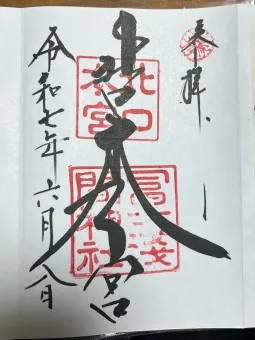 奉拝
北口本宮
北口
本宮
冨士浅
間神社
令和七年六月八日